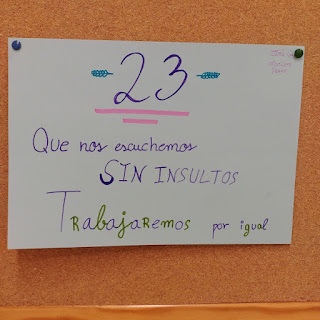 23
Que nos escuchemos
SIN INSULTOS
TRabajaRemos por igual